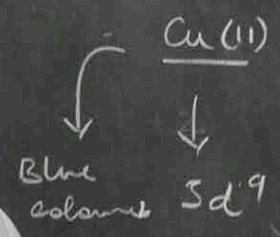 Cu (II)
Blue
coloured
3d⁹